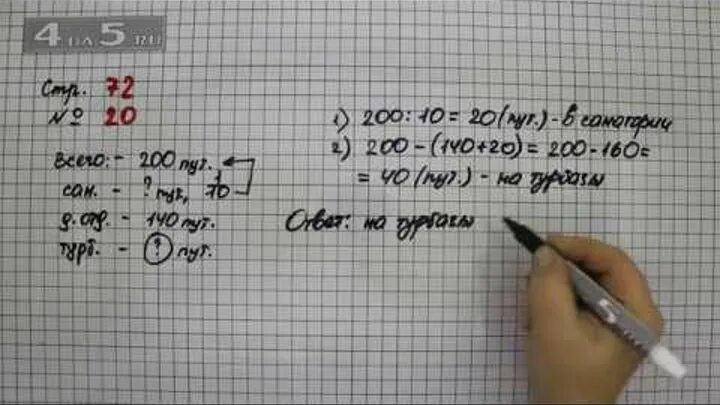 4НА5.RU
Стр. 72
№ 20
Всего: - 200 пут.
сан. - ? пут, 1/10
д.отд. - 140 пут.
турб. - ? пут.
1) 200 : 10 = 20 (пут.) - в санатории
2) 200 - (140+20) = 200 - 160 =
= 40 (пут.) - на турбазы
Ответ: на турбазы
5